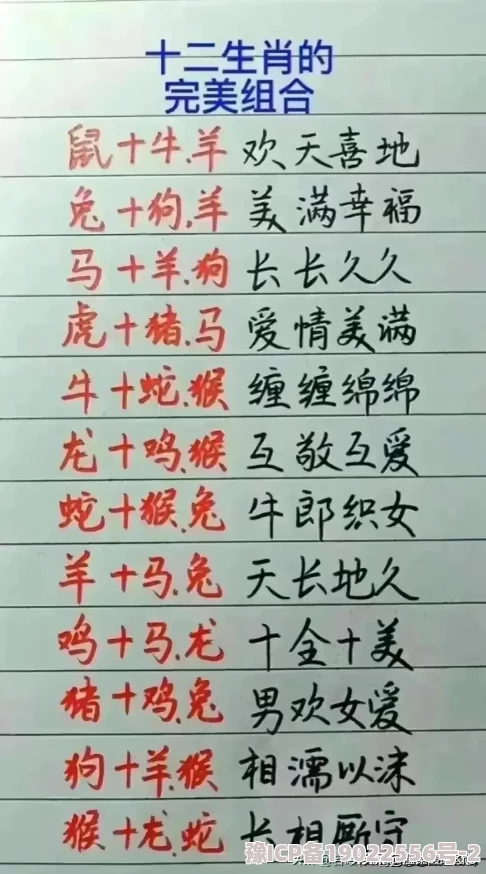 十二生肖的
完美组合
鼠十牛.羊 欢天喜地
兔十狗.羊 美满幸福
马十羊.狗 长长久久
虎十猪.马 爱情美满
牛十蛇.猴 缠缠绵绵
龙十鸡.猴 互敬互爱
蛇十猴.兔 牛郎织女
羊十马.兔 天长地久
鸡十马.龙 十全十美
猪十鸡.兔 男欢女爱
狗十羊.猴 相濡以沫
猴十龙.蛇 长相厮守
豫ICP备19022556号-2